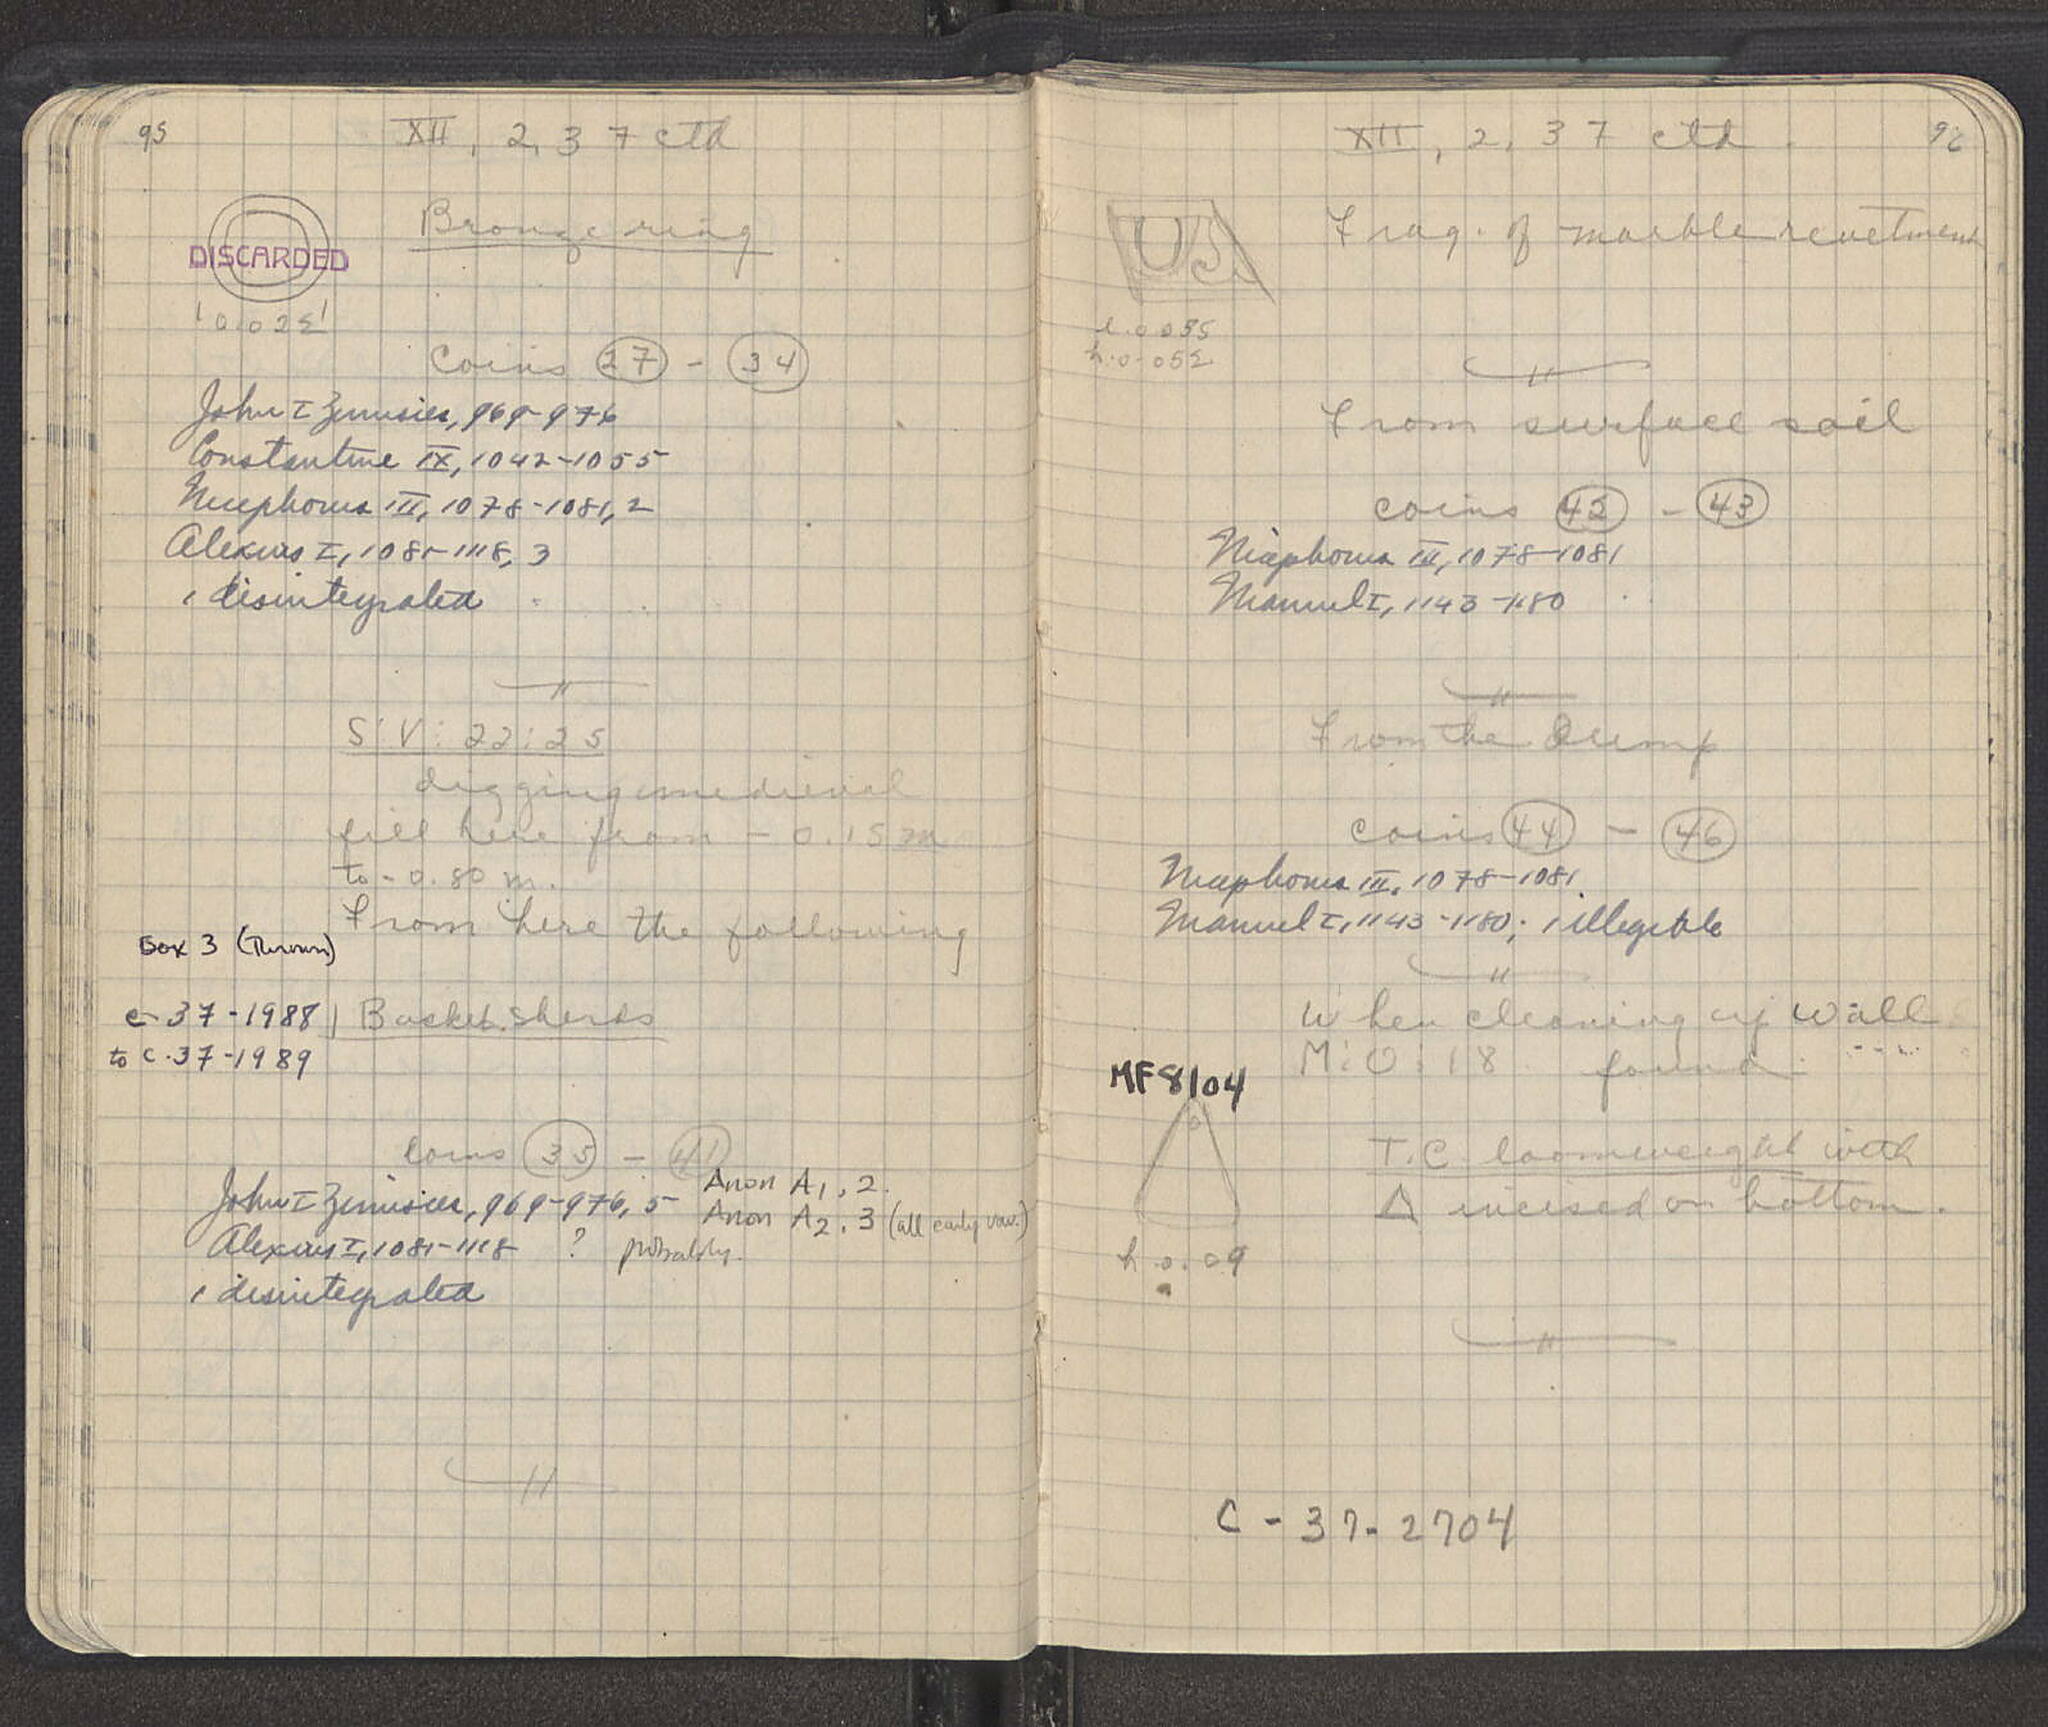 95
XII, 2, 37 ctd
Bronze ring
DISCARDED
0.025
Coins 27 - 34
John I Zimisces, 969-976
Constantine IX, 1042-1055
Nicephorus III, 1078-1081, 2
Alexius I, 1081-1118, 3
1 disintegrated
S: V: 22: 25
digging medieval
fill here from - 0.15 m
to - 0.80 m.
From here the following
Box 3 (Thrown)
C-37-1988 1 Basket sherds
to C-37-1989
Coins 35 - 41
John I Zimisces, 969-976, 5 Anon A1, 2.
Anon A2, 3 (all early var.)
Alexius I, 1081-1118 ? probably.
1 disintegrated
XII, 2, 37 ctd. 96
Frag. of marble revetment
l. 0.035
h. 0.052
From surface soil
coins 42 - 43
Nicephorus III, 1078-1081
Manuel I, 1143-1180
From the Dump
coins 44 - 46
Nicephorus III, 1078-1081
Manuel I, 1143-1180; 1 illegible
When cleaning up Wall
M: O: 18 found
MF 8104
T.C. loomweight with
Δ incised on bottom.
h. 0.09
C-37-2704